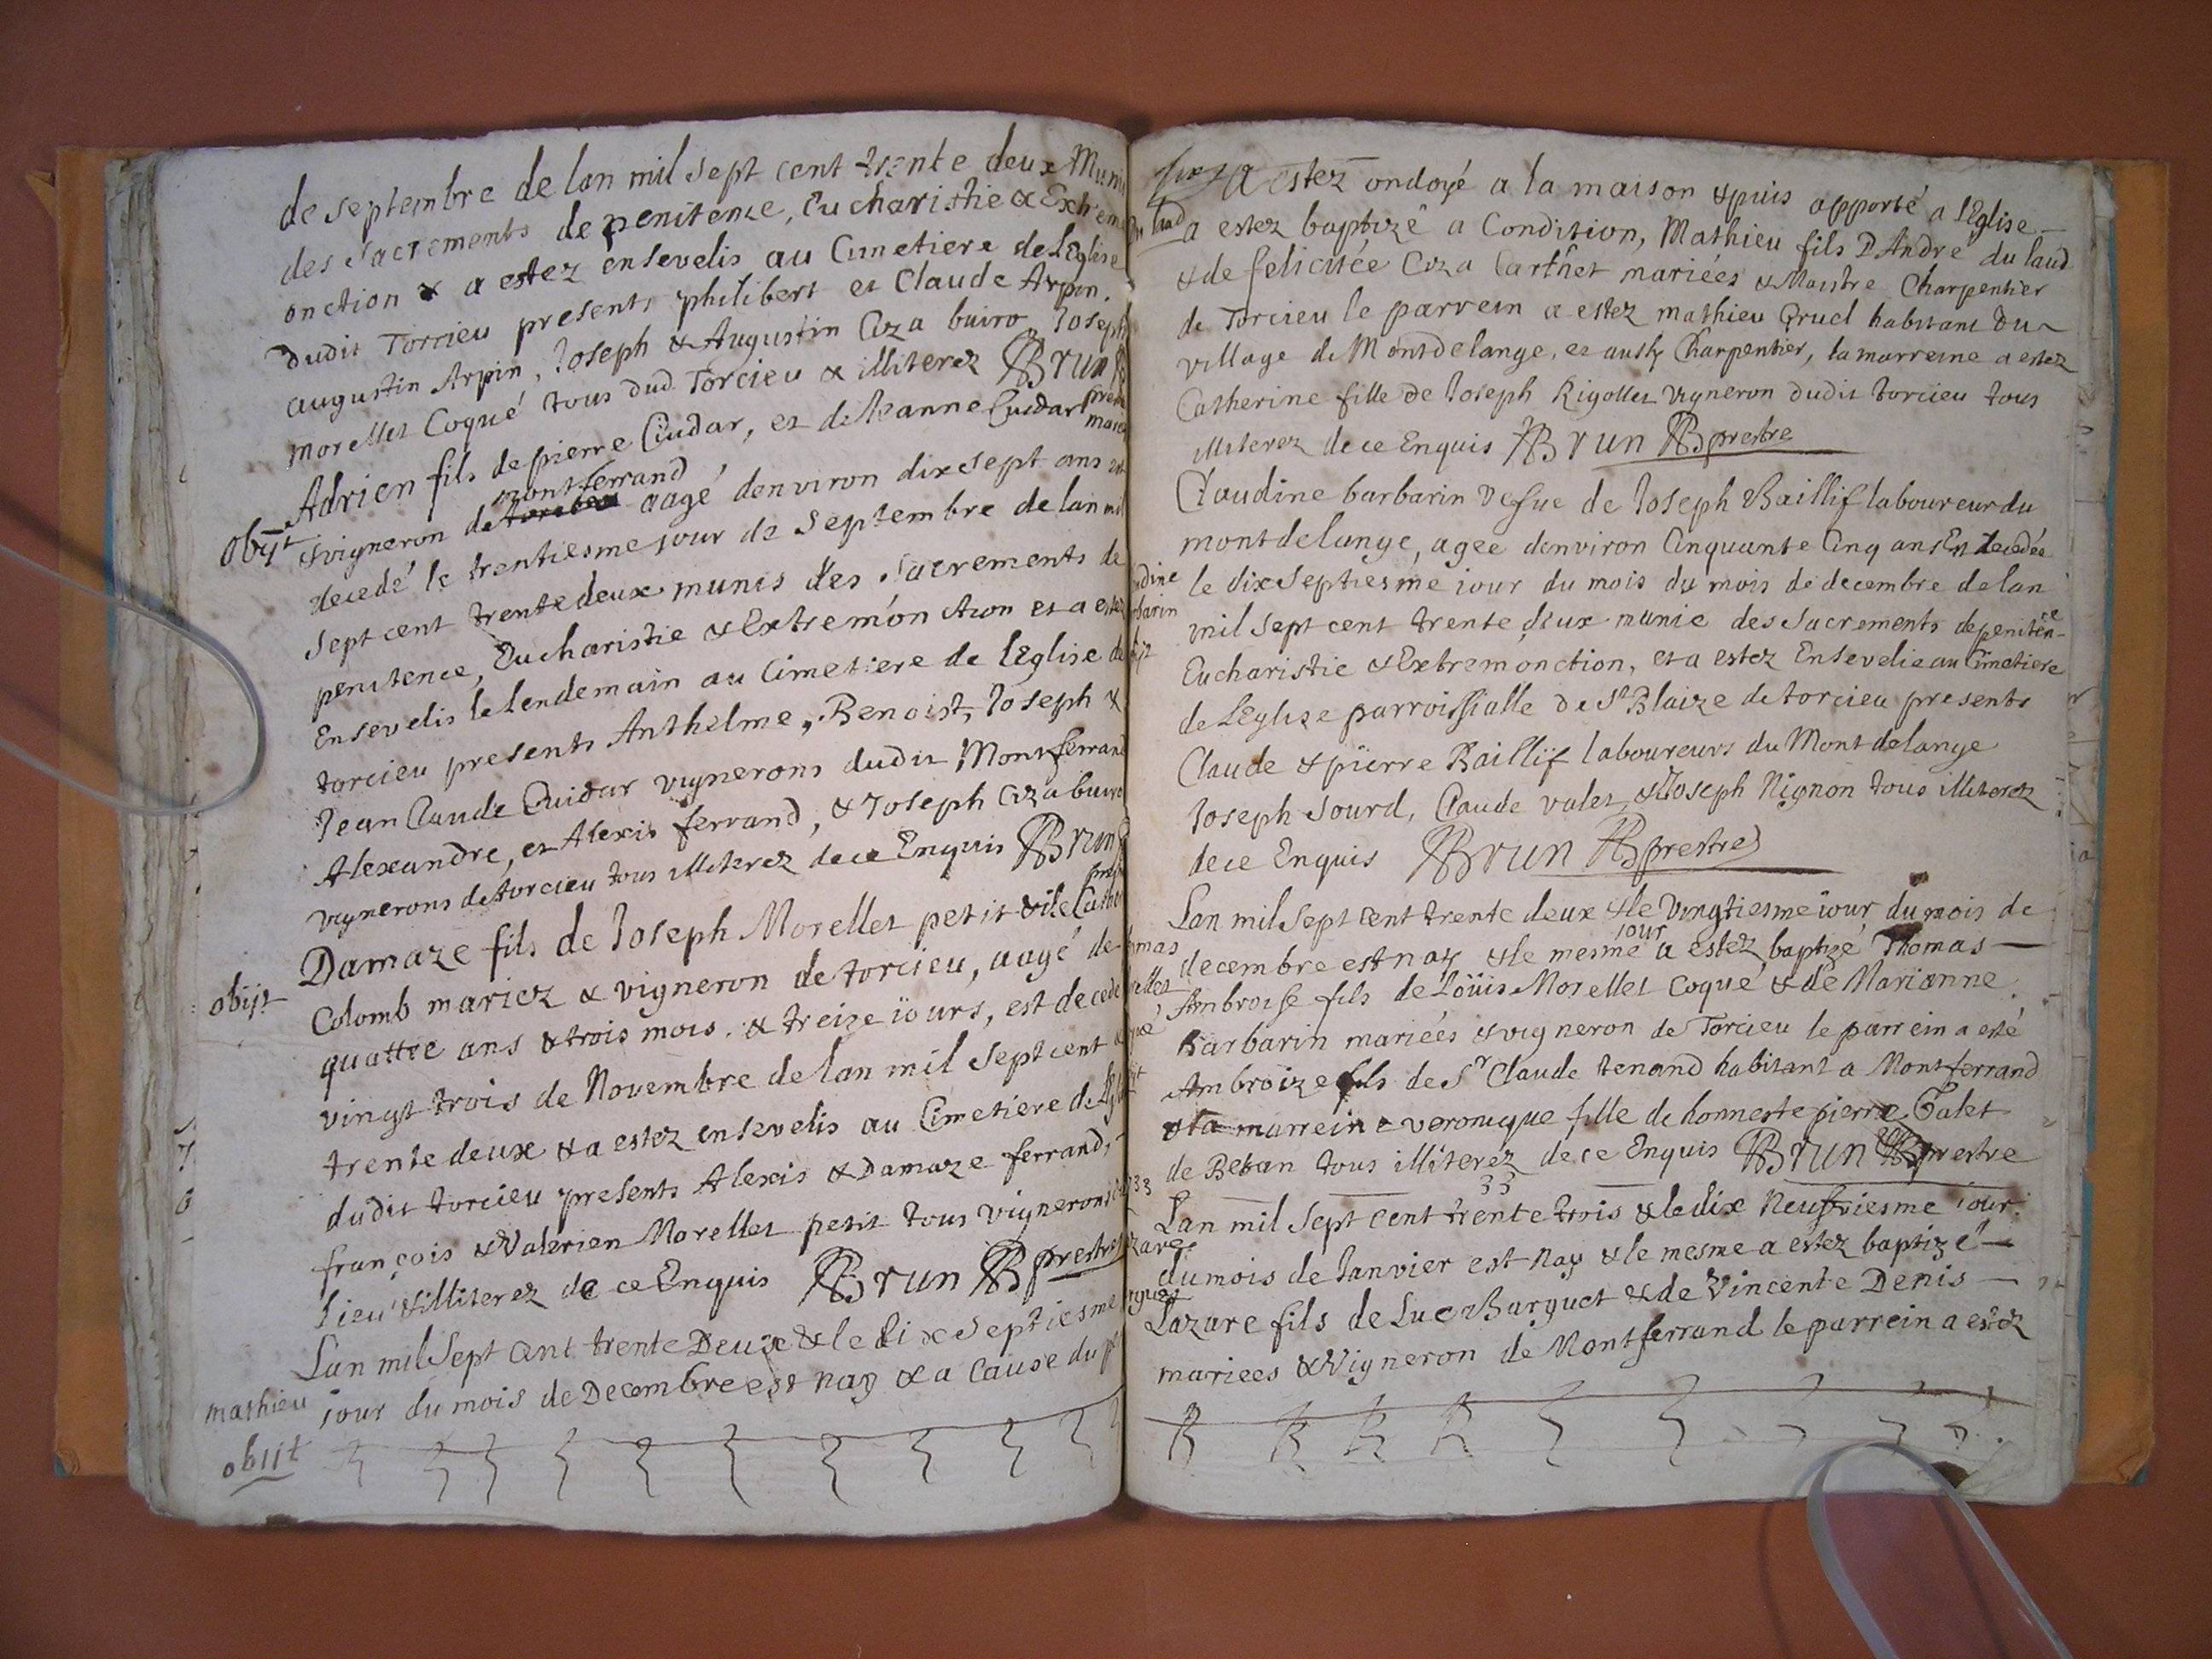 de septembre de lan mil sept cent trente deux Munis
des sacrements de penitence, Eucharistie & Extrem
onction & a estez ensevelis au Cimetiere de lEglise
dudit Torcieu presents philibert et Claude Arpin,
augustin Arpin, Joseph & Augustin Coza buiro Joseph
morellet Coqué tous dud Torcieu & illiterez Brun
Adrien fils de pierre Cuidar, et de Jeanne Cuidar mariez
montferrand
obijt
& vigneron de aagé denviron dix sept ans est
decedé le trentiesme jour de Septembre de lan mil
sept cent trente deux munis des sacrements de
penitence, Eucharistie & Extremonction et a estez
Ensevelis le lendemain au Cimetiere de lEglise de
torcieu presents Anthelme, Benoist, Joseph &
Jean Claude Cuidar vignerons dudit Montferrand
Alexandre, et Alexis ferrand, & Joseph Coza buiro
vignerons de torcieu tous illiterez de ce Enquis Brun
Damaze fils de Joseph Morellet petit & de
obijt
Colomb mariez & vigneron de torcieu, aagé de
quattre ans & trois mois, & treize iours, est decedé
vingt trois de Novembre de lan mil sept cent
trente deux & a estez ensevelis au Cimetiere de
dudit torcieu presents Alexis & Damaze ferrand,
françois & Valerien Morellet petit tous vignerons
lieu & illiterez de ce Enquis Brun prestre
Lan mil Sept Cent trente Deux & le dix Septiesme
mathieu
jour du mois de Decembre est nay & a Cause du
obijt
a estez ondoyé a la maison & puis apporté a lEglise
a estez baptizé a Condition, Mathieu fils DAndré du laud
& de felicitée Coza Carthet mariées & Maistre Charpentier
de Torcieu le parrein a estez mathieu Gruel habitant Du
village de Montdelange, et aussy Charpentier, la marreine a estez
Catherine fille de Joseph Rigollet vigneron dudit torcieu tous
illiterez de ce Enquis Brun prestre
Claudine barbarin Vefue de Joseph Baillif laboureur du
montdelange, agée denviron Cinquante Cinq ans Est decedée
le dix Septiesme iour du mois du mois de decembre de lan
mil sept cent trente deux munie des Sacrements de penitence
Eucharistie & Extremonction, et a estez Ensevelie au Cimetiere
de LEglize parroissialle de St Blaize de torcieu presents
Claude & pierre Baillif laboureurs du Montdelange
Joseph Sourd, Claude valet, & Joseph Nignon tous illiterez
de ce Enquis Brun prestre
Lan mil Sept Cent trente deux & le Vingtiesme iour du mois de
decembre est nay & le mesme jour a estez baptizé Thomas
Ambroise fils de Loüis Morellet Coqué & de Marianne
Barbarin mariées & vigneron de Torcieu le parrein a esté
Ambroize fils de Sr Claude tenand habitant a Montferrand
& la marreine veronique fille de honneste pierre Galet
de Betan tous illiterez de ce Enquis Brun prestre
33
Lan mil Sept Cent trente trois & le dix Neufviesme iour
du mois de Janvier est nay & le mesme a estez baptizé
Lazare fils de Luc Barguet & de Vincente Denis
mariees & Vigneron de Montferrand le parrein a estez